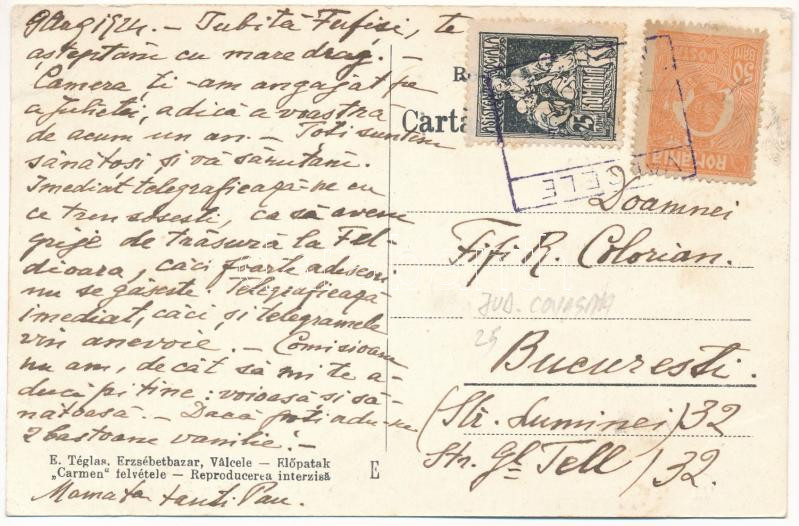 9 Aug 1924. — Iubită Fifisi, te
asteptăm cu mare drag. —
Camera ti-am angajat pe
a Julietei, adică a voastră
de acum un an. — Toti suntem
sănătosi si vă sărutăm.
Imediat telegrafiează-ne cu
ce tren sosesti, ca să avem
grije de trăsură la Fel-
dioara, căci foarte adeseori
nu se găseste. Telegrafiează
imediat, căci si telegramele
vin anevoie. — Comisioane
nu am, decât să mi te a-
duci pe tine: voioasă si să-
nătoasă. — Dacă poti adu-ne
2 bastoane vanilie. —
E. Téglas, Erzsébetbazar, Vâlcele — Előpatak
„Carmen" felvétele — Reproducerea interzisă
E
Mamata tanti Pau.
Cartă
ASISTENȚA SOCIALĂ
25 ROMANIA
50 BANI POSTA
ROMANIA
Doamnei
Fifi R. Colorian.
JUD. COVASNA
25
Bucuresti.
(Str. Luminei) 32
Str. Gl Tell / 32.